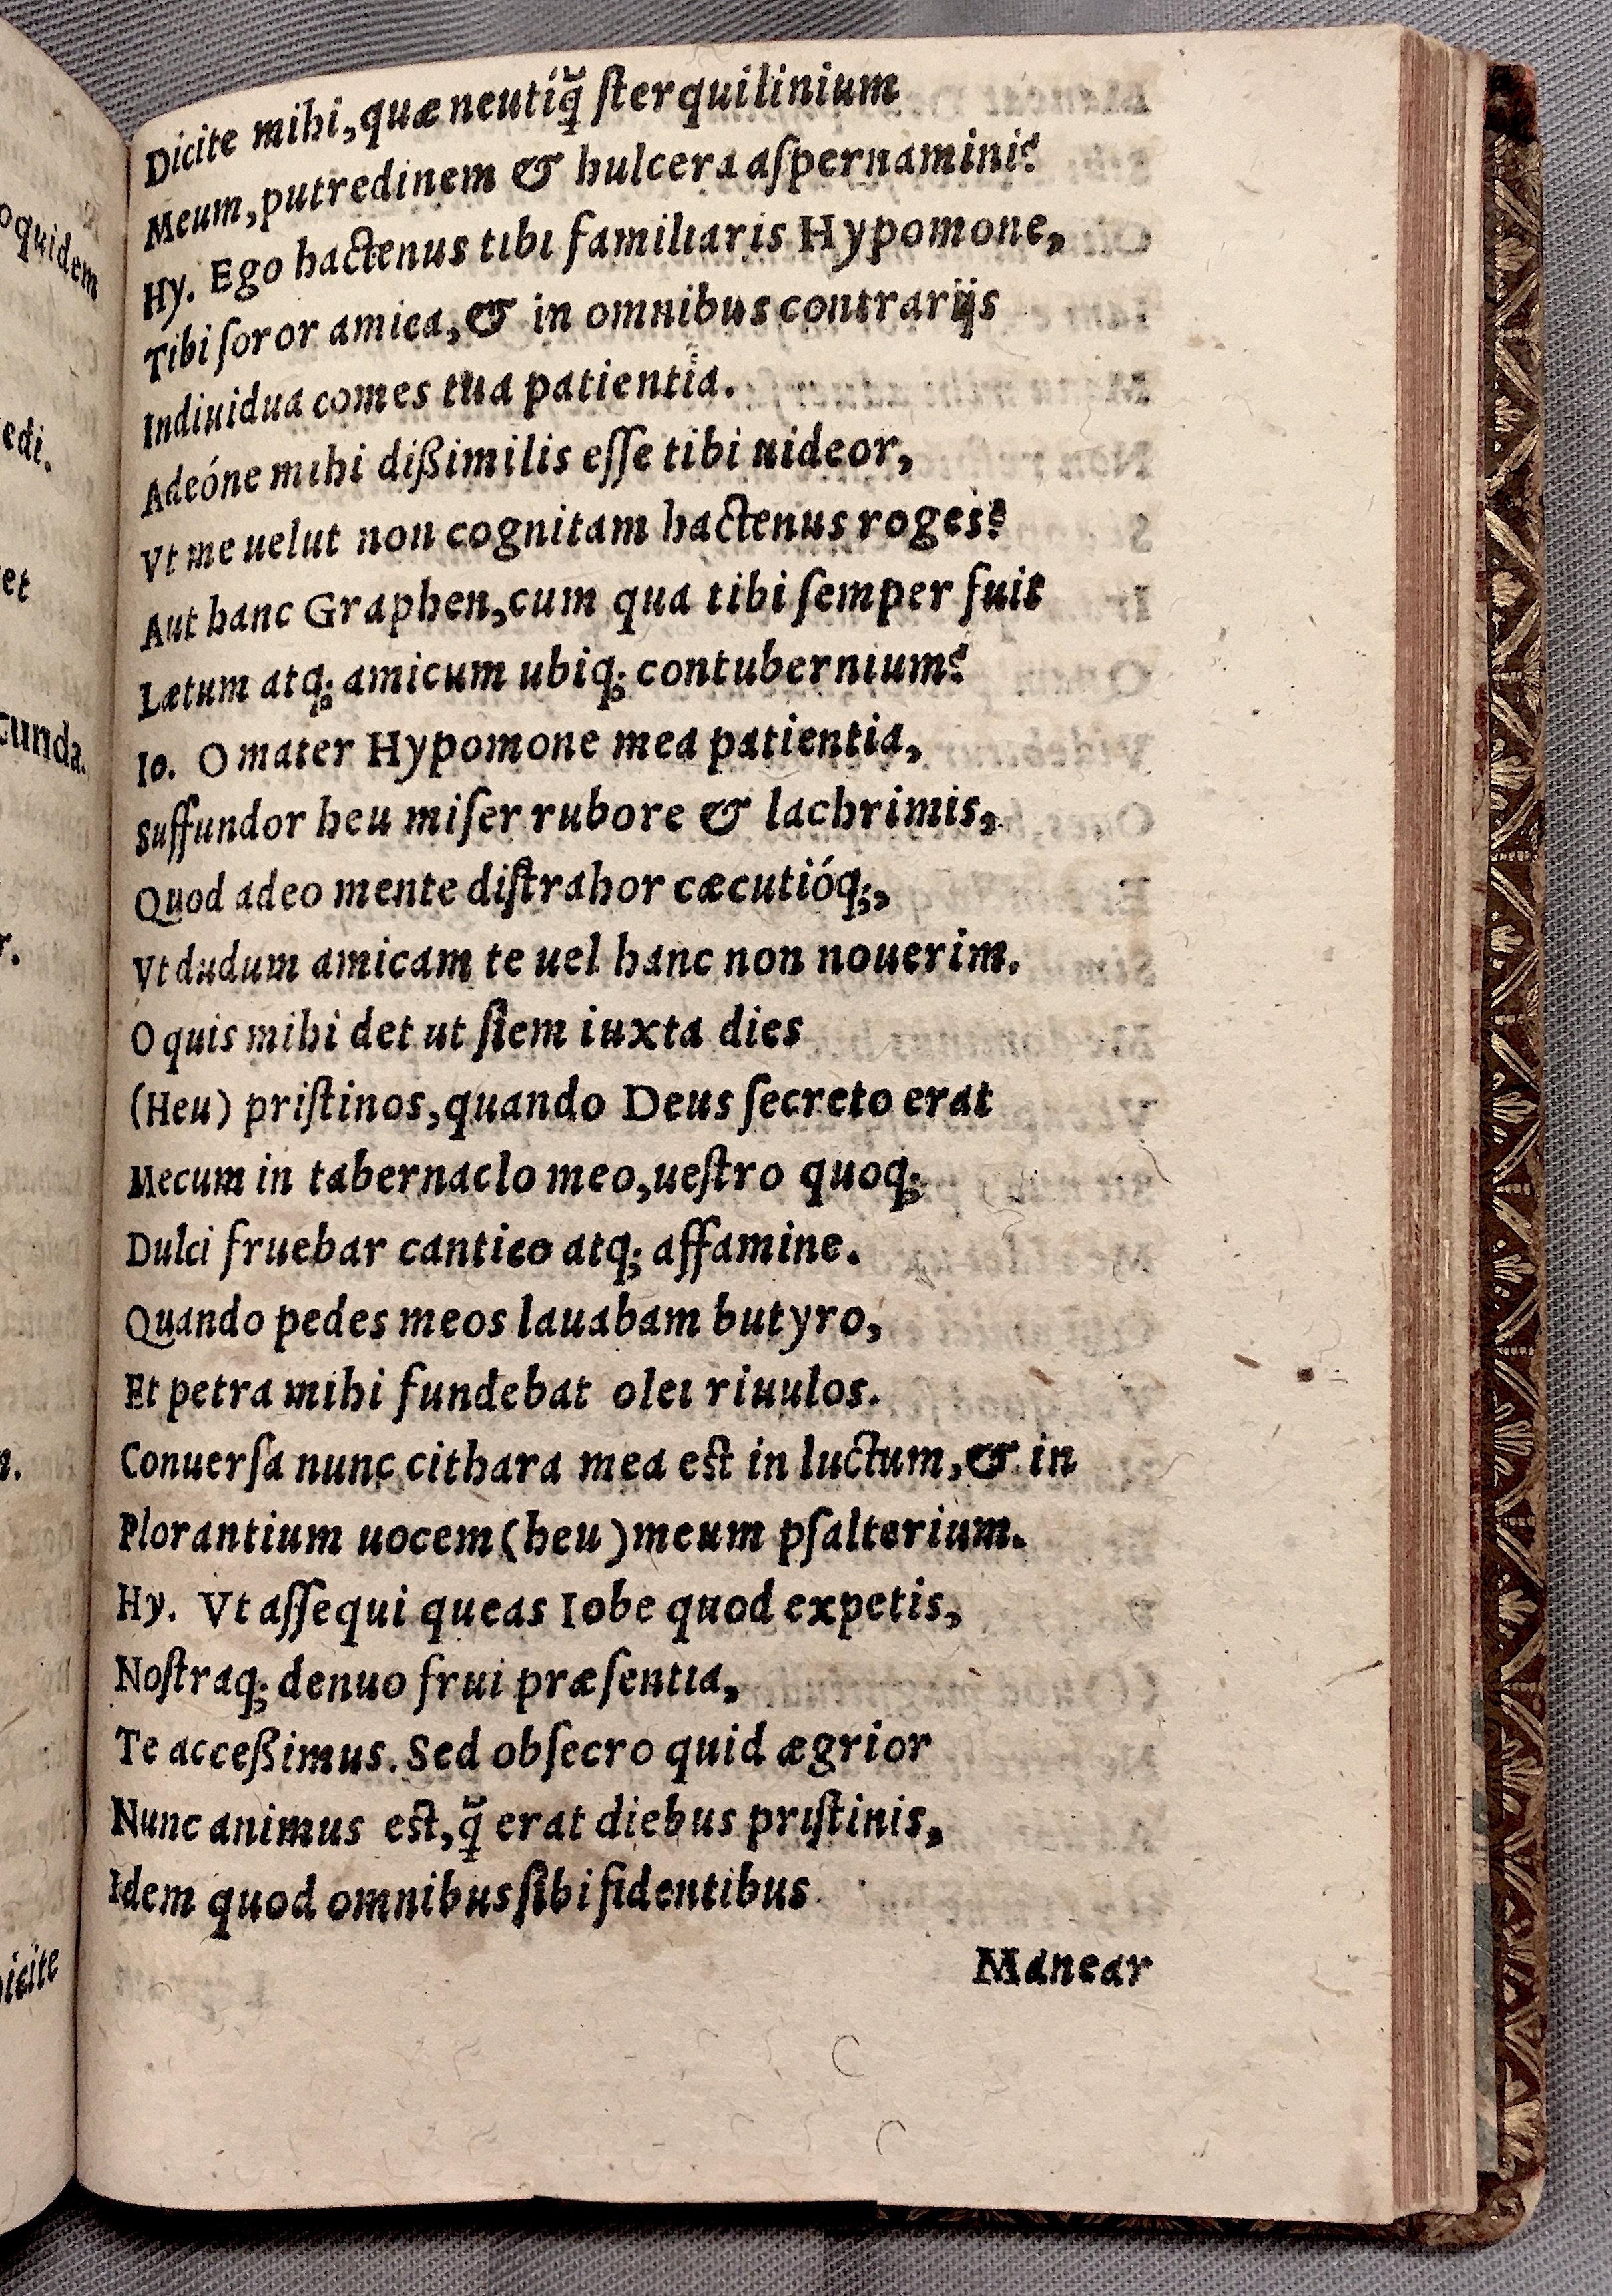 oquidem
edi.
et
cunda.
r.
n.
Dicite mihi, quæ neutiq̃ ſterquilinium
Meum, putredinem & hulcera aſpernamini?
Hy. Ego hactenus tibi familiaris Hypomone,
Tibi ſoror amica, & in omnibus contrarijs
Indiuidua comes tua patientia.
Adeóne mihi dißimilis eſſe tibi uideor,
Vt me uelut non cognitam hactenus roges?
Aut hanc Graphen, cum qua tibi ſemper fuit
Lætum atq; amicum ubiq; contubernium?
Io. O mater Hypomone mea patientia,
Suffundor heu miſer rubore & lachrimis,
Quod adeo mente diſtrahor cæcutióq;,
Vt dudum amicam te uel hanc non nouerim.
O quis mihi det ut ſiem iuxta dies
(Heu) priſtinos, quando Deus ſecreto erat
Mecum in tabernaclo meo, ueſtro quoq;
Dulci fruebar cantico atq; affamine.
Quando pedes meos lauabam butyro,
Et petra mihi fundebat olei riuulos.
Conuerſa nunc cithara mea eſt in luctum, & in
Plorantium uocem (heu) meum pſalterium.
Hy. Vt aſſequi queas Iobe quod expetis,
Noſtraq; denuo frui præſentia,
Te acceßimus. Sed obſecro quid ægrior
Nunc animus eſt, q̃ erat diebus priſtinis,
Idem quod omnibus ſibi fidentibus
Manear